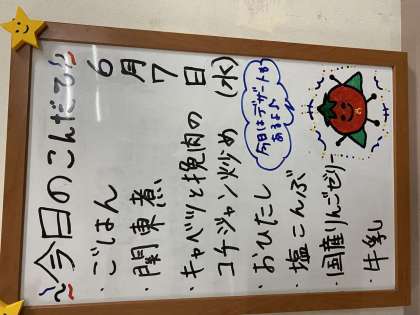 今日のこんだて
6月7日(水)
・ごはん
・関東煮
・キャベツと挽肉の
コチジャン炒め
・おひたし
・塩こんぶ
・国産りんごゼリー
・牛乳
今日はデザートも
あるよ♪